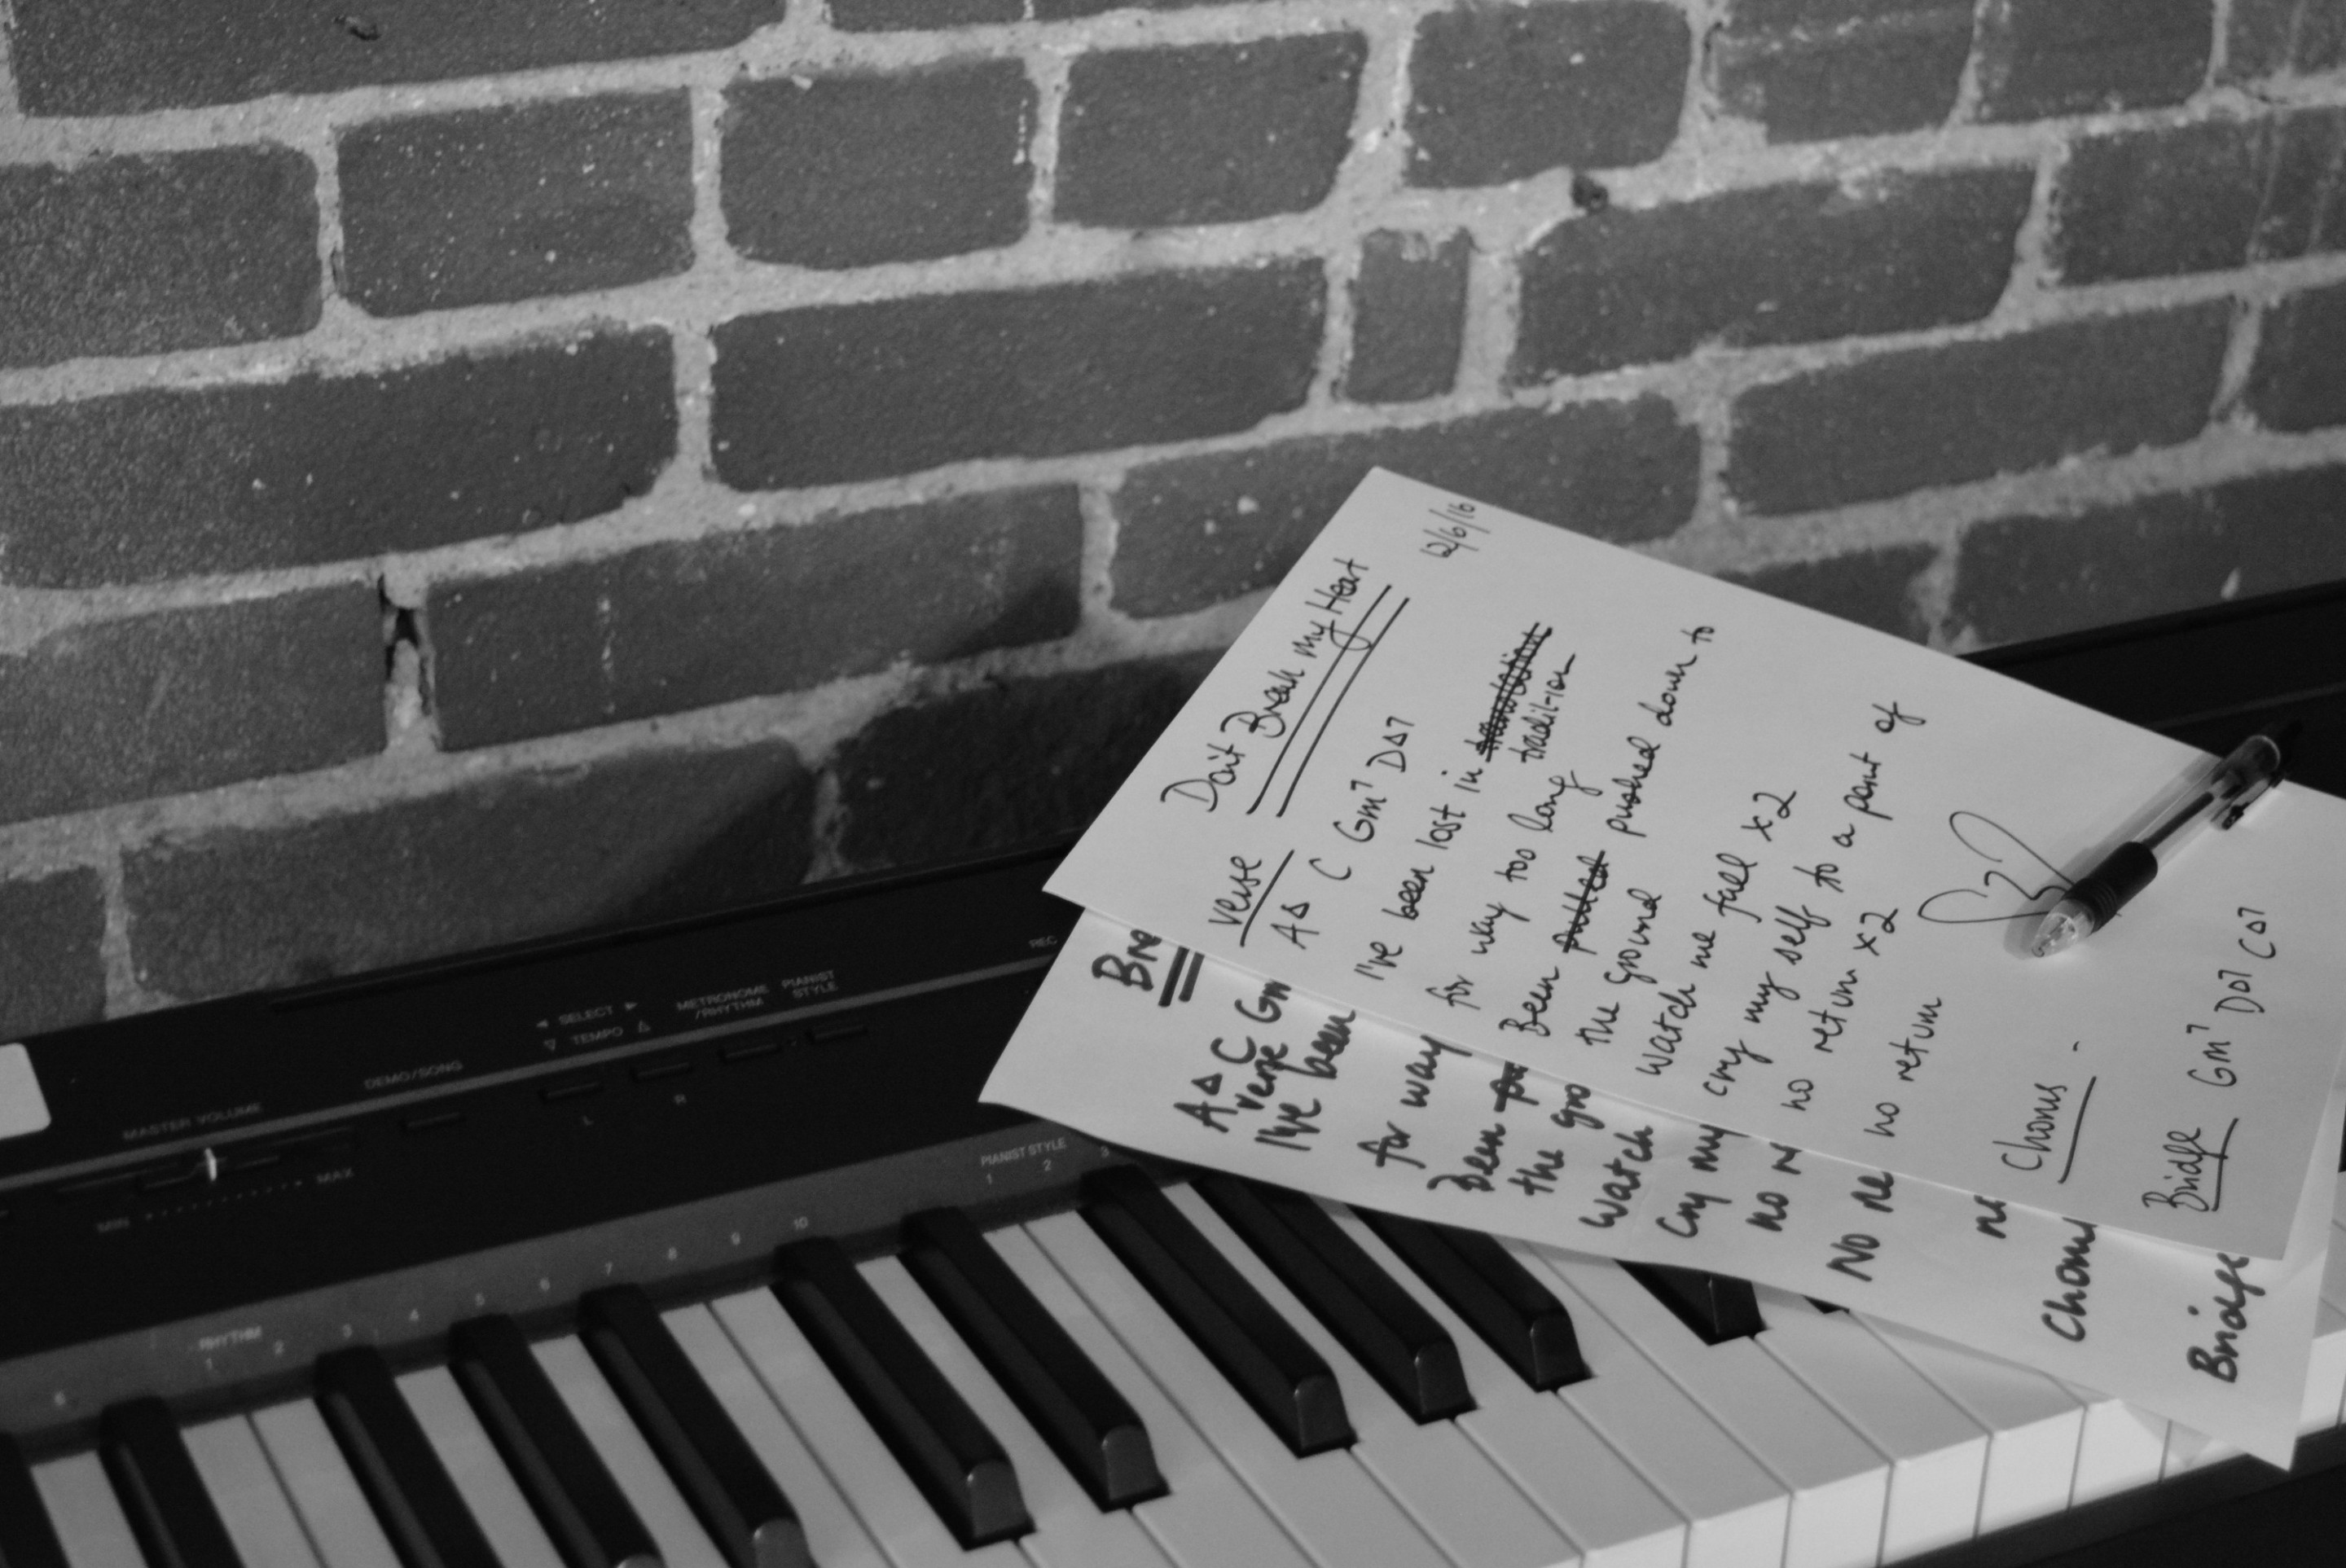 Don't Break my Heart
12/6/16
verse
A∆ C Gm7 D∆7
I've been lost in
tradition
for way too long
Been pulled pushed down to
the ground
watch me fall x2
cry my self to a point of
no return x2
no return
Chorus -
Bridge Gm7 D∆7 C∆7
Bre
A∆ C Gm
verse
I've been
for way
Been pu
the gro
watch
Cry my
no r
No re
Chorus
Bridge
REC
◄ SELECT ►
▽ TEMPO △
METRONOME
/RHYTHM
PIANIST
STYLE
DEMO/SONG
MASTER VOLUME
MIN MAX
L R
PIANIST STYLE
1 2 3
RHYTHM
1 2 3 4 5 6 7 8 9 10